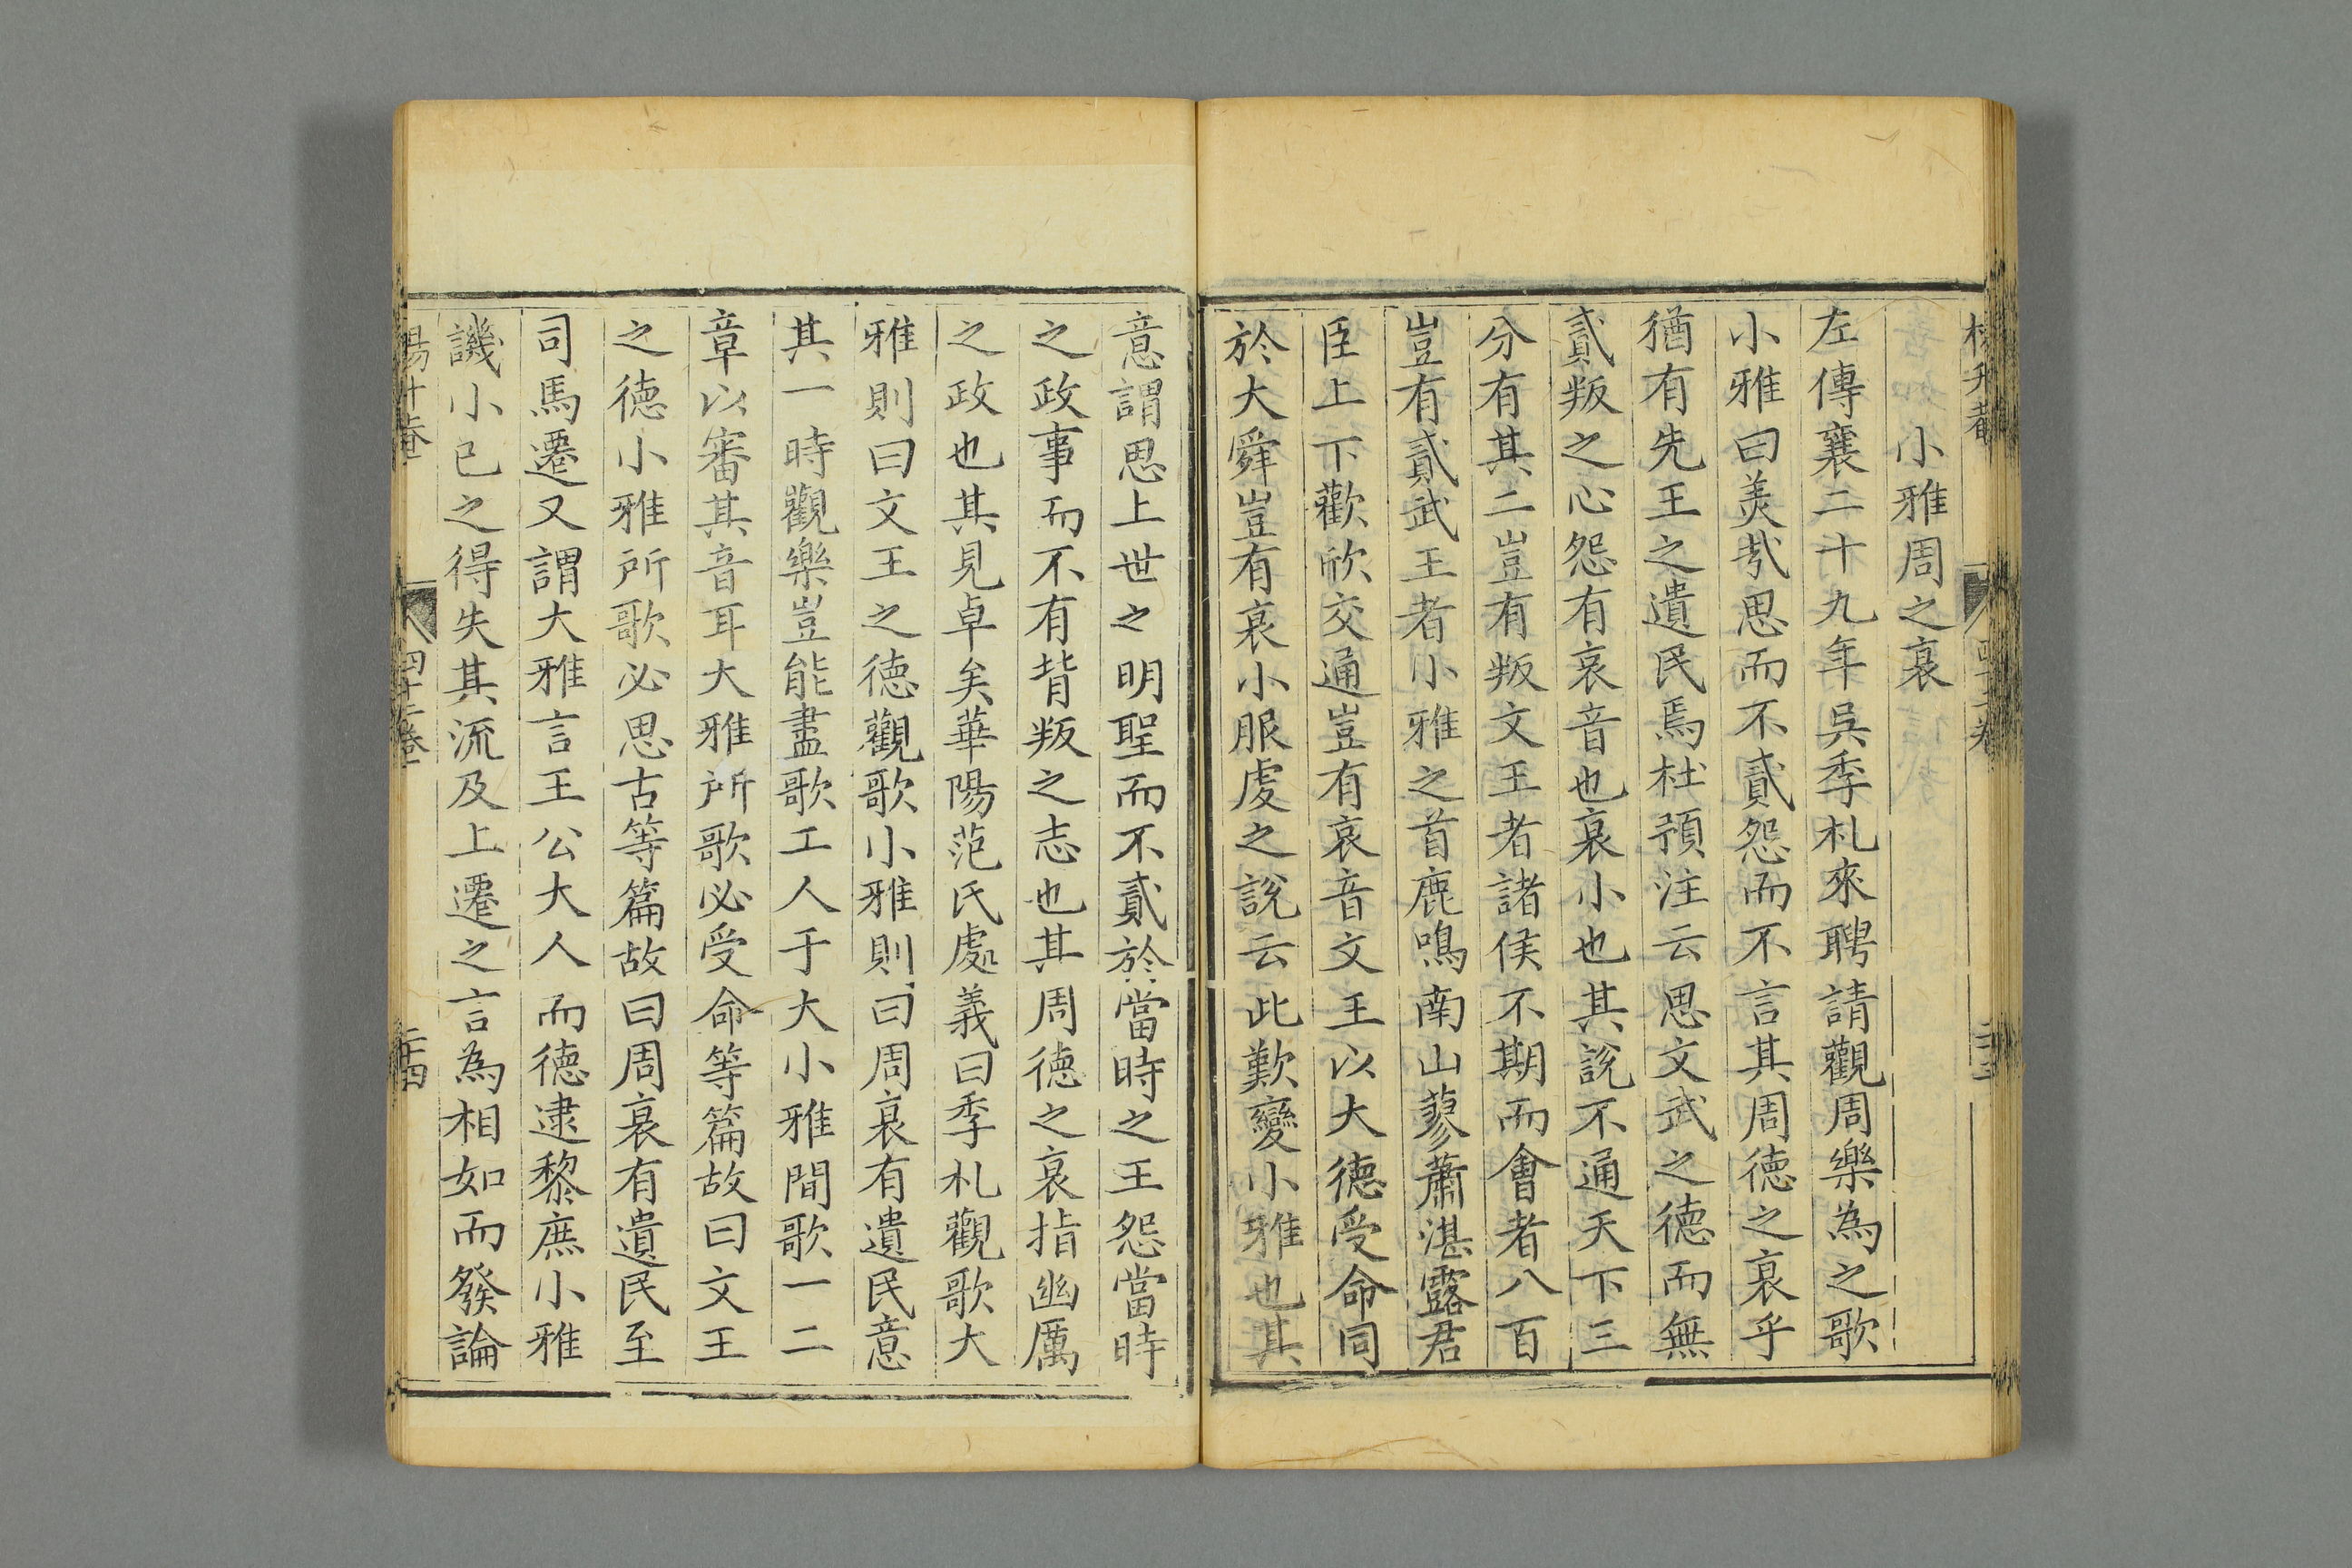 小雅周之衰
左傳襄二十九年吳季札來聘請觀周樂為之歌
小雅曰美哉思而不貳怨而不言其周德之衰乎
猶有先王之遺民焉杜預注云思文武之德而無
貳叛之心怨有哀音也衰小也其說不通天下三
分有其二豈有叛文王者諸侯不期而會者八百
豈有貳武王者小雅之首鹿鳴南山蓼蕭湛露君
臣上下歡欣交通豈有哀音文王以大德受命同
於大舜豈有衰小服虔之說云此歎變小雅也其
意謂思上世之明聖而不貳於當時之王怨當時
之政事而不有背叛之志也其周德之衰指幽厲
之政也其見卓矣華陽范氏處義曰季札觀歌大
雅則曰文王之德觀歌小雅則曰周衰有遺民意
其一時觀樂豈能盡歌工人于大小雅間歌一二
章以審其音耳大雅所歌必受命等篇故曰文王
之德小雅所歌必思古等篇故曰周衰有遺民至
司馬遷又謂大雅言王公大人而德逮黎庶小雅
譏小己之得失其流及上遷之言為相如而發論